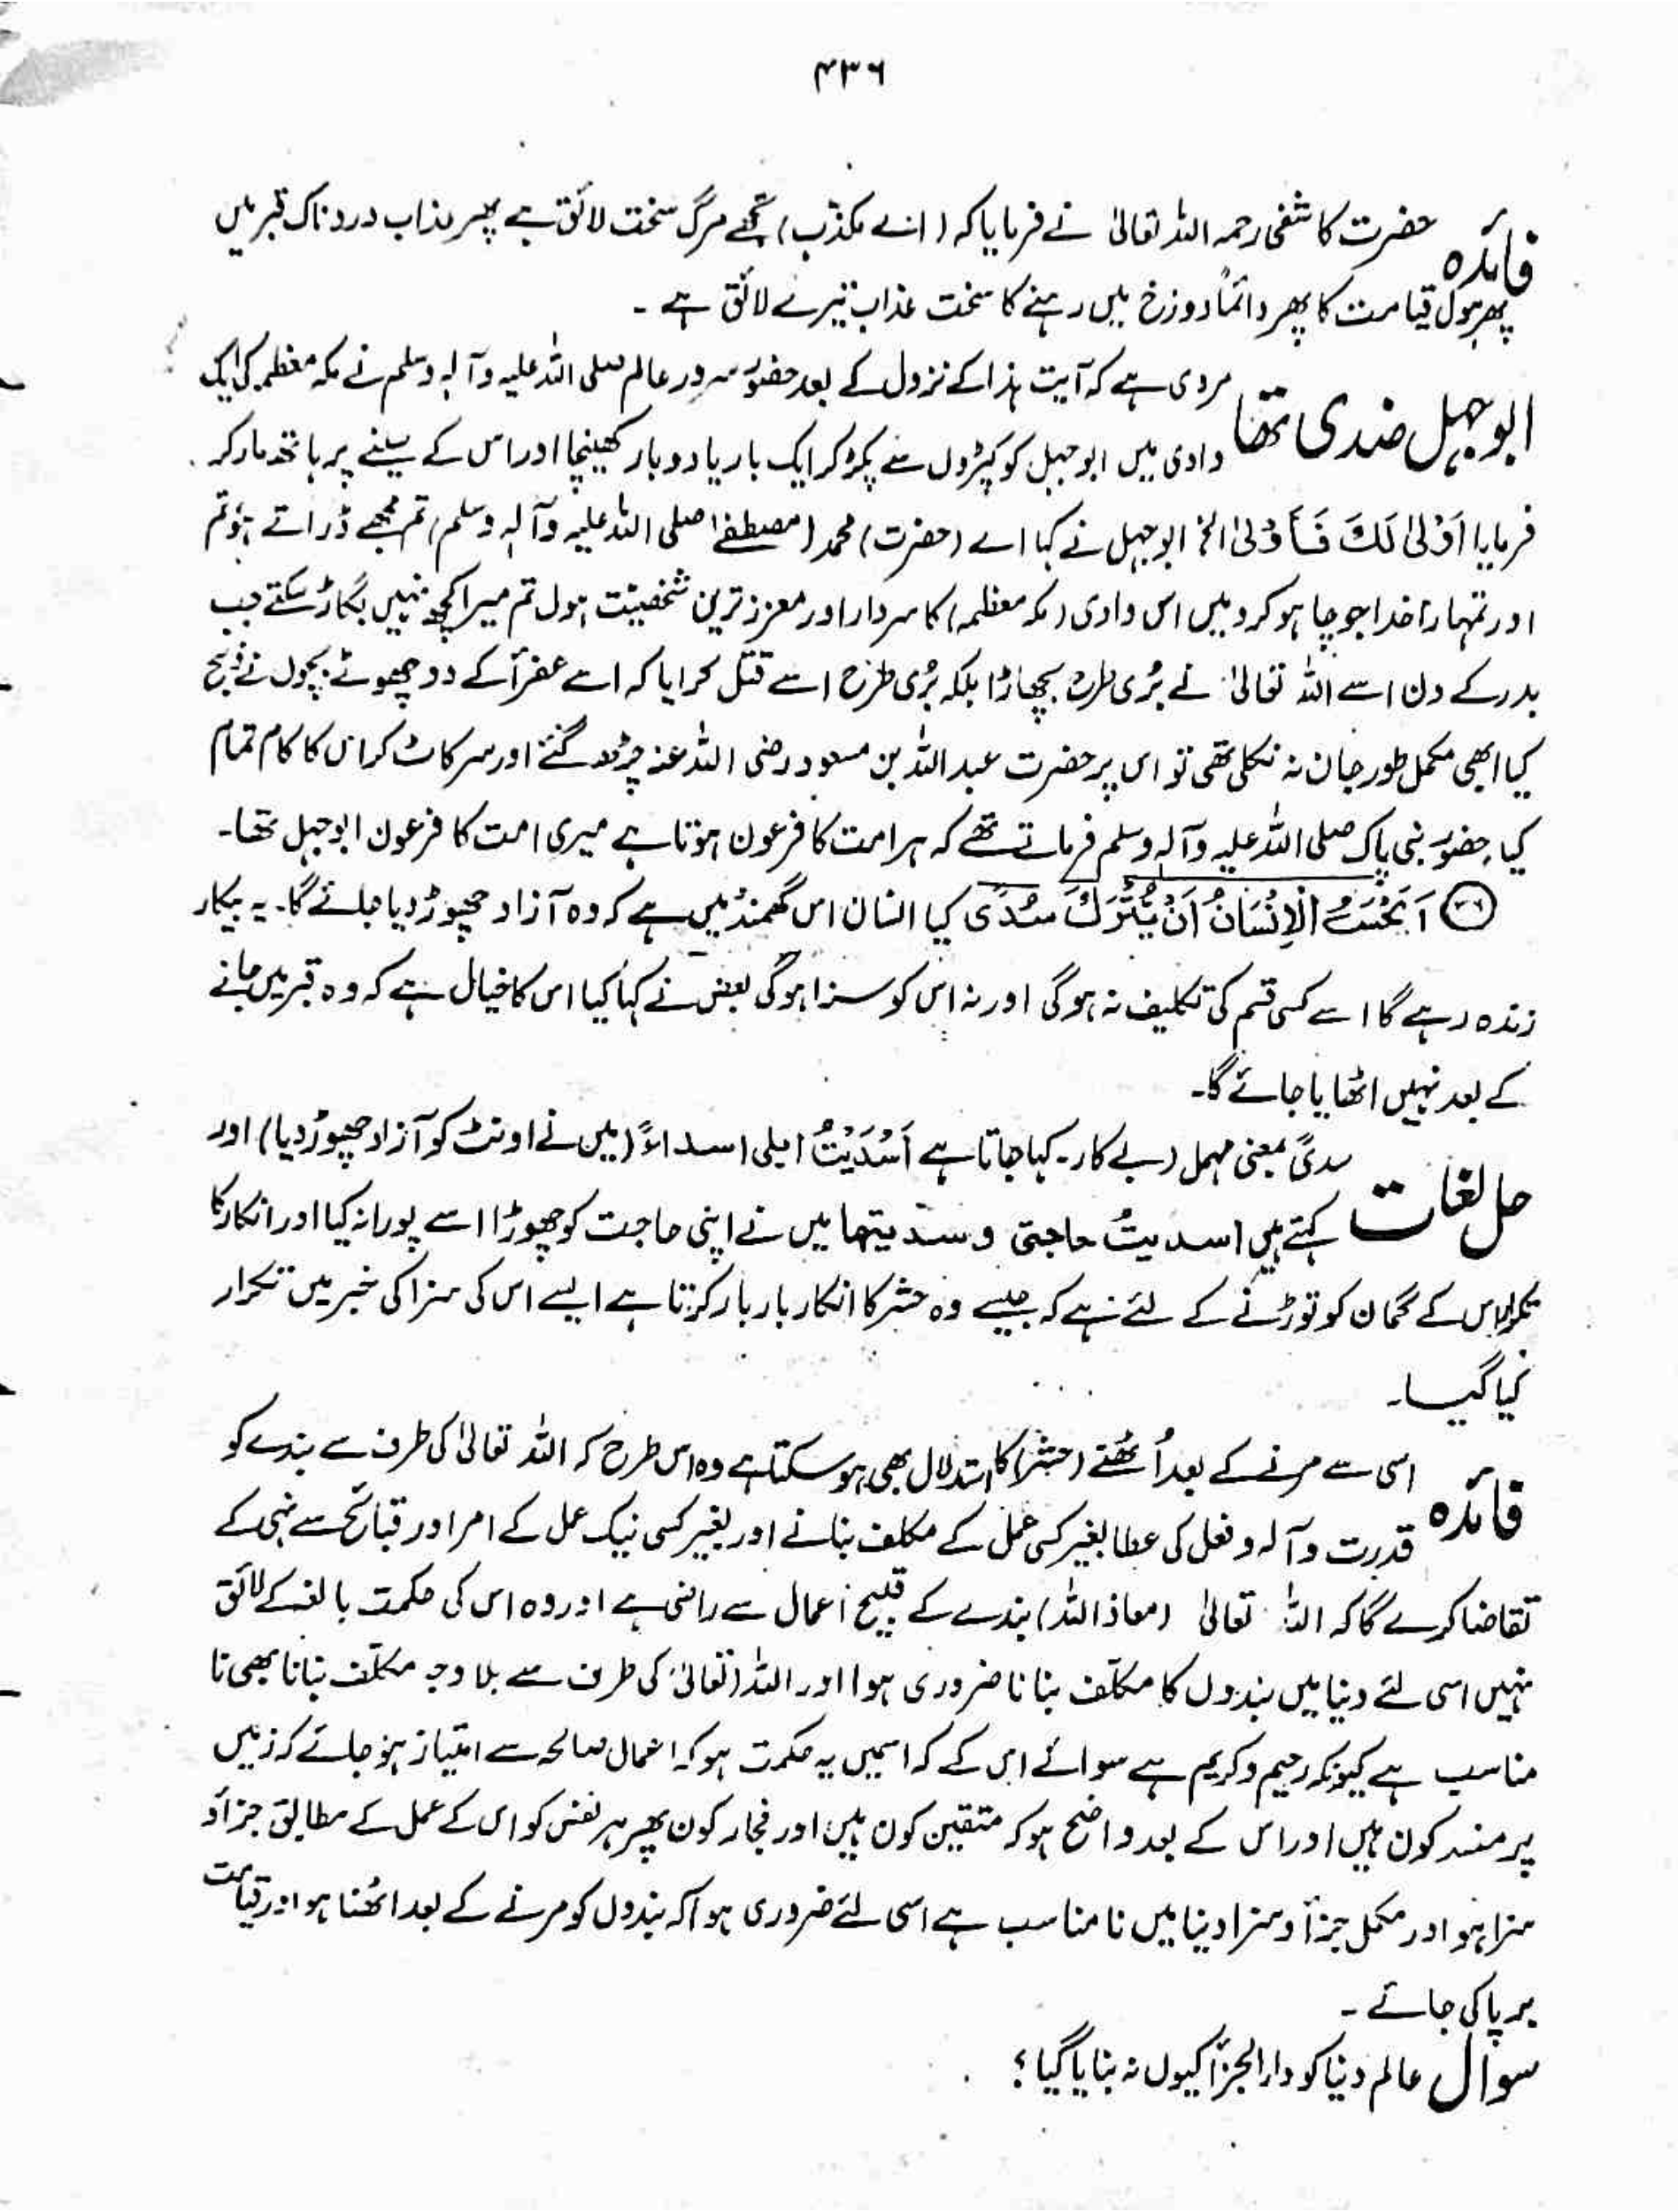 ۴۳۶
فائدہ حضرت کاشفی رحمہ اللہ تعالیٰ نے فرمایا کہ (اے مکذب) تجھے مرگ سخت لائق ہے پھر عذاب دردناک قبر میں
پھر ہول قیامت کا پھر دائماً دوزخ میں رہنے کا سخت عذاب تیرے لائق ہے ۔
ابوجہل ضدی تھا مروی ہے کہ آیت ہذا کے نزول کے بعد حضور سرور عالم صلی اللہ علیہ وآلہ وسلم نے مکہ معظمہ کی ایک
وادی میں ابوجہل کو کپڑوں سے پکڑ کر ایک بار یا دو بار کھینچا اور اس کے سینے پر ہاتھ مار کر
فرمایا اَوْلیٰ لَکَ فَاَوْلیٰ الخ ابوجہل نے کہا اے (حضرت) محمد (مصطفےٰ صلی اللہ علیہ وآلہ وسلم) تم مجھے ڈراتے ہو تم
اور تمہارا خدا جو چاہو کرو میں اس وادی (مکہ معظمہ) کا سردار اور معزز ترین شخصیت ہوں تم میرا کچھ نہیں بگاڑ سکتے جب
بدر کے دن اسے اللہ تعالیٰ نے بُری طرح پچھاڑا بلکہ بُری طرح اسے قتل کرایا کہ اسے عفرأ کے دو چھوٹے بچوں نے ذبح
کیا ابھی مکمل طور جان نہ نکلی تھی تو اس پر حضرت عبداللہ بن مسعود رضی اللہ عنہ چڑھ گئے اور سر کاٹ کر اس کا کام تمام
کیا۔ حضور نبی پاک صلی اللہ علیہ وآلہ وسلم فرماتے تھے کہ ہر امت کا فرعون ہوتا ہے میری امت کا فرعون ابوجہل تھا۔
(۳۶) اَیَحْسَبُ الْاِنْسَانُ اَنْ یُّتْرَکَ سُدًی کیا انسان اس گھمنڈ میں ہے کہ وہ آزاد چھوڑ دیا جائے گا۔ یہ بیکار
زندہ رہے گا اسے کسی قسم کی تکلیف نہ ہوگی اور نہ اس کو سزا ہوگی بعض نے کہا کیا اس کا خیال ہے کہ وہ قبر میں جانے
کے بعد نہیں اٹھایا جائے گا۔
حل لغات سدیً بمعنی مہمل (بے کار۔ کہا جاتا ہے اَسْدَیْتُ ابلی اسداءً (میں نے اونٹ کو آزاد چھوڑ دیا) اور
کہتے ہیں اسدیتُ حاجتی وسدیتہا میں نے اپنی حاجت کو چھوڑا اسے پورا نہ کیا اور انکار کا
تکرار اس کے گمان کو توڑنے کے لئے ہے کہ جیسے وہ حشر کا انکار بار بار کرتا ہے ایسے اس کی سزا کی خبر میں تکرار
کیا گیا۔
فائدہ اسی سے مرنے کے بعد اُٹھنے (حشر) کا استدلال بھی ہوسکتا ہے وہ اس طرح کہ اللہ تعالیٰ کی طرف سے بندے کو
قدرت و آلہ و فعل کی عطا بغیر کسی عمل کے مکلف بنانے اور بغیر کسی نیک عمل کے امر اور قبائح سے نہی کے
تقاضا کرے گا کہ اللہ تعالیٰ (معاذ اللہ) بندے کے قبیح اعمال سے راضی ہے اور وہ اس کی حکمت بالغہ کے لائق
نہیں اسی لئے دنیا میں بندوں کا مکلف بنانا ضروری ہوا اور اللہ (تعالیٰ کی طرف سے بلا وجہ مکلف بنانا بھی نا
مناسب ہے کیونکہ رحیم وکریم ہے سوائے اس کے کہ اسمیں یہ حکمت ہو کہ اعمال صالحہ سے امتیاز ہو جائے کہ زمیں
پر مفسد کون ہیں اور اس کے بعد واضح ہو کہ متقین کون ہیں اور فجار کون پھر ہر نفس کو اس کے عمل کے مطابق جزأ و
سزا ہو اور مکمل جزأ و سزا دنیا میں نامناسب ہے اسی لئے ضروری ہوا کہ بندوں کو مرنے کے بعد اٹھنا ہو اور قیامت
برپا کی جائے ۔
سوال عالم دنیا کو دارالجزأ کیوں نہ بنایا گیا ؟